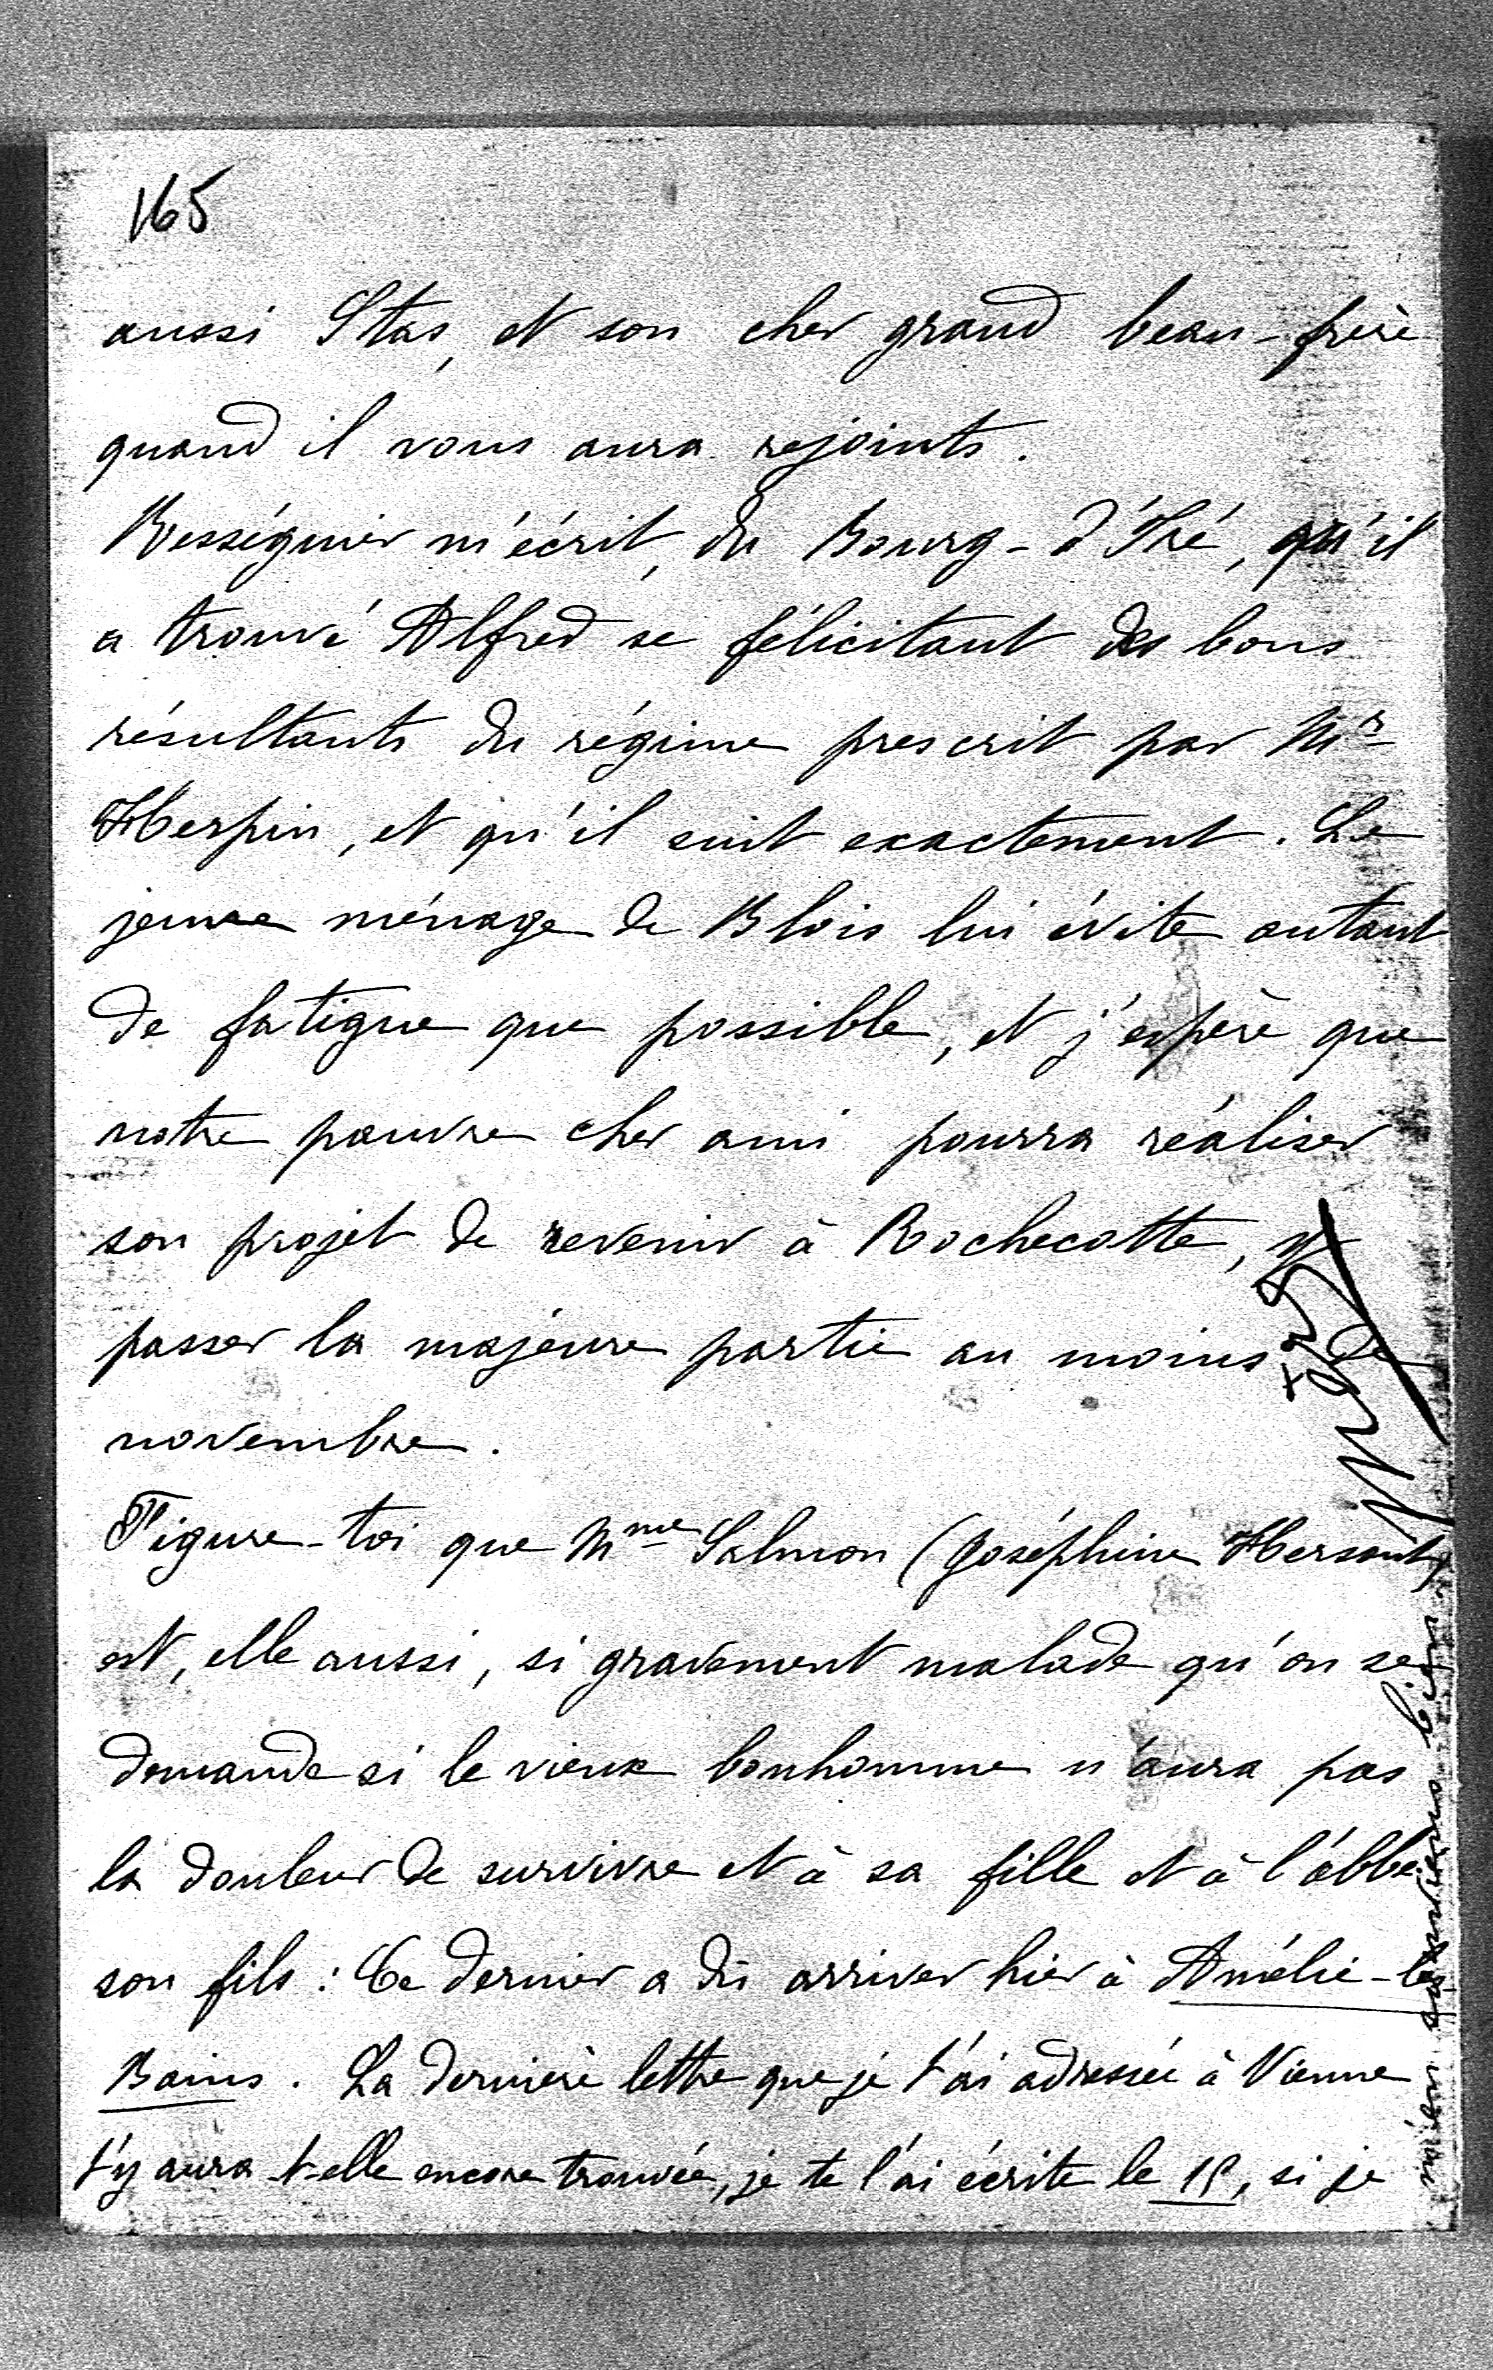 165
aussi Stas, et son cher grand beau-frère
quand il vous aura rejoints.
Rességuier m'écrit, du Bourg-d'Iré, qu'il
a trouvé Alfred se félicitant des bons
résultants du régime prescrit par Mr
Herpin, et qu'il suit exactement. Le
jeune ménage de Blois lui évite autant
de fatigue que possible, et j'espère que
notre pauvre cher ami pourra réaliser
son projet de revenir à Rochecotte, y
passer la majeure partie au moins de
novembre.
Figure-toi que Mme Salmon (Joséphine Hersant)
est, elle aussi, si gravement malade qu'on se
demande si le vieux bonhomme n'aura pas
la douleur de survivre et à sa fille et à l'abbé
son fils : Ce dernier a dû arriver hier à Amélie-les
Bains. La dernière lettre que je t'ai adressée à Vienne
t'y aura-t-elle encore trouvée, je te l'ai écrite le 15, si je
m'en souviens bien.